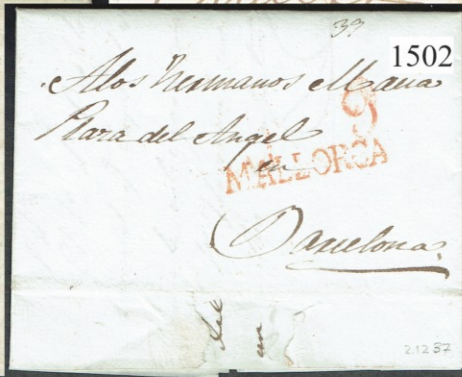 39
1502
A los hermanos Maria
9
Plaza del Angel
en
MALLORCA
Barcelona
2.12 37